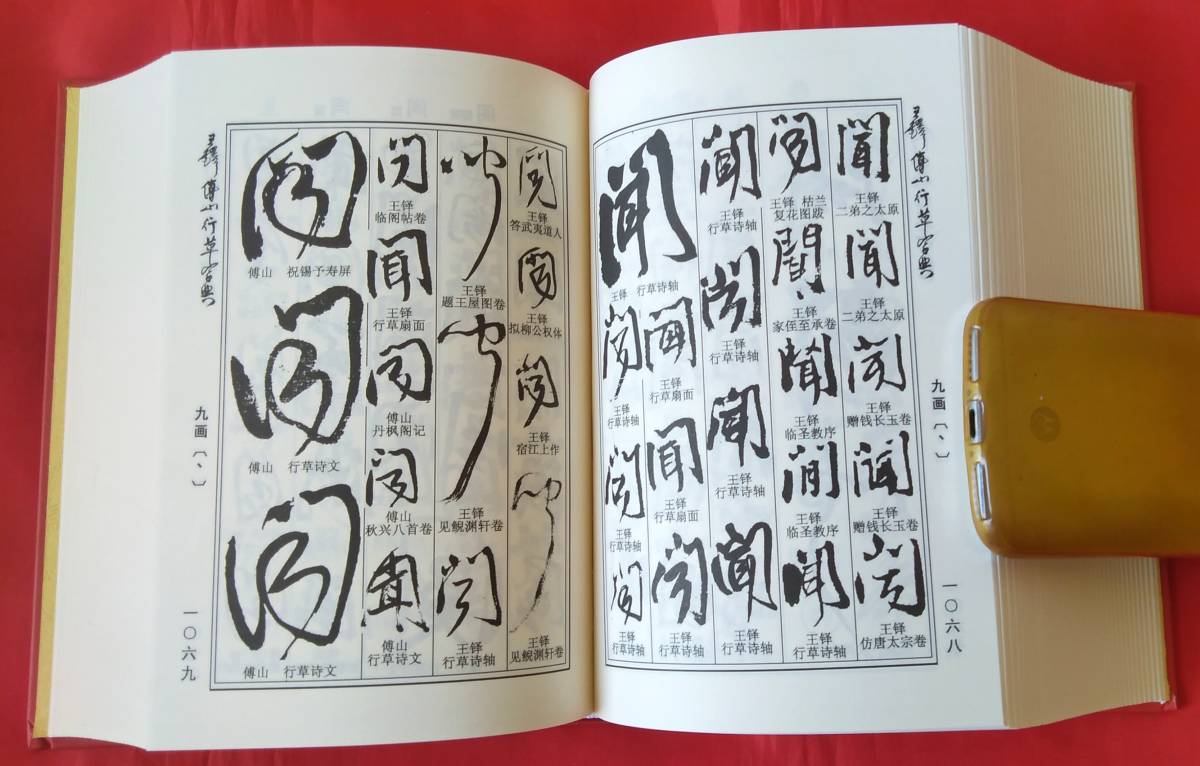 王铎傅山行草字典
九画〔丶〕
一〇六八
聞
王铎
二弟之太原
聞
王铎
二弟之太原
王铎
赠钱长玉卷
聞
王铎
赠钱长玉卷
王铎
仿唐太宗卷
王铎 枯兰
复花图跋
聞
王铎
家侄至承卷
聞
王铎
临圣教序
王铎
临圣教序
聞
王铎
行草诗轴
聞
王铎
行草诗轴
王铎
行草诗轴
聞
王铎
行草诗轴
聞
王铎
行草诗轴
聞
王铎 行草诗轴
聞
王铎
行草扇面
聞
王铎
行草扇面
王铎
行草诗轴
王铎
行草诗轴
王铎
行草诗轴
王铎
行草诗轴
王铎
答武夷道人
王铎
拟柳公权体
王铎
宿江上作
王铎
见鲵渊轩卷
王铎
题王屋图卷
王铎
见鲵渊轩卷
王铎
行草诗轴
王铎
临阁帖卷
聞
王铎
行草扇面
傅山
丹枫阁记
傅山
秋兴八首卷
傅山
行草诗文
傅山 祝锡予寿屏
傅山 行草诗文
傅山 行草诗文
王铎傅山行草字典
九画〔丶〕
一〇六九